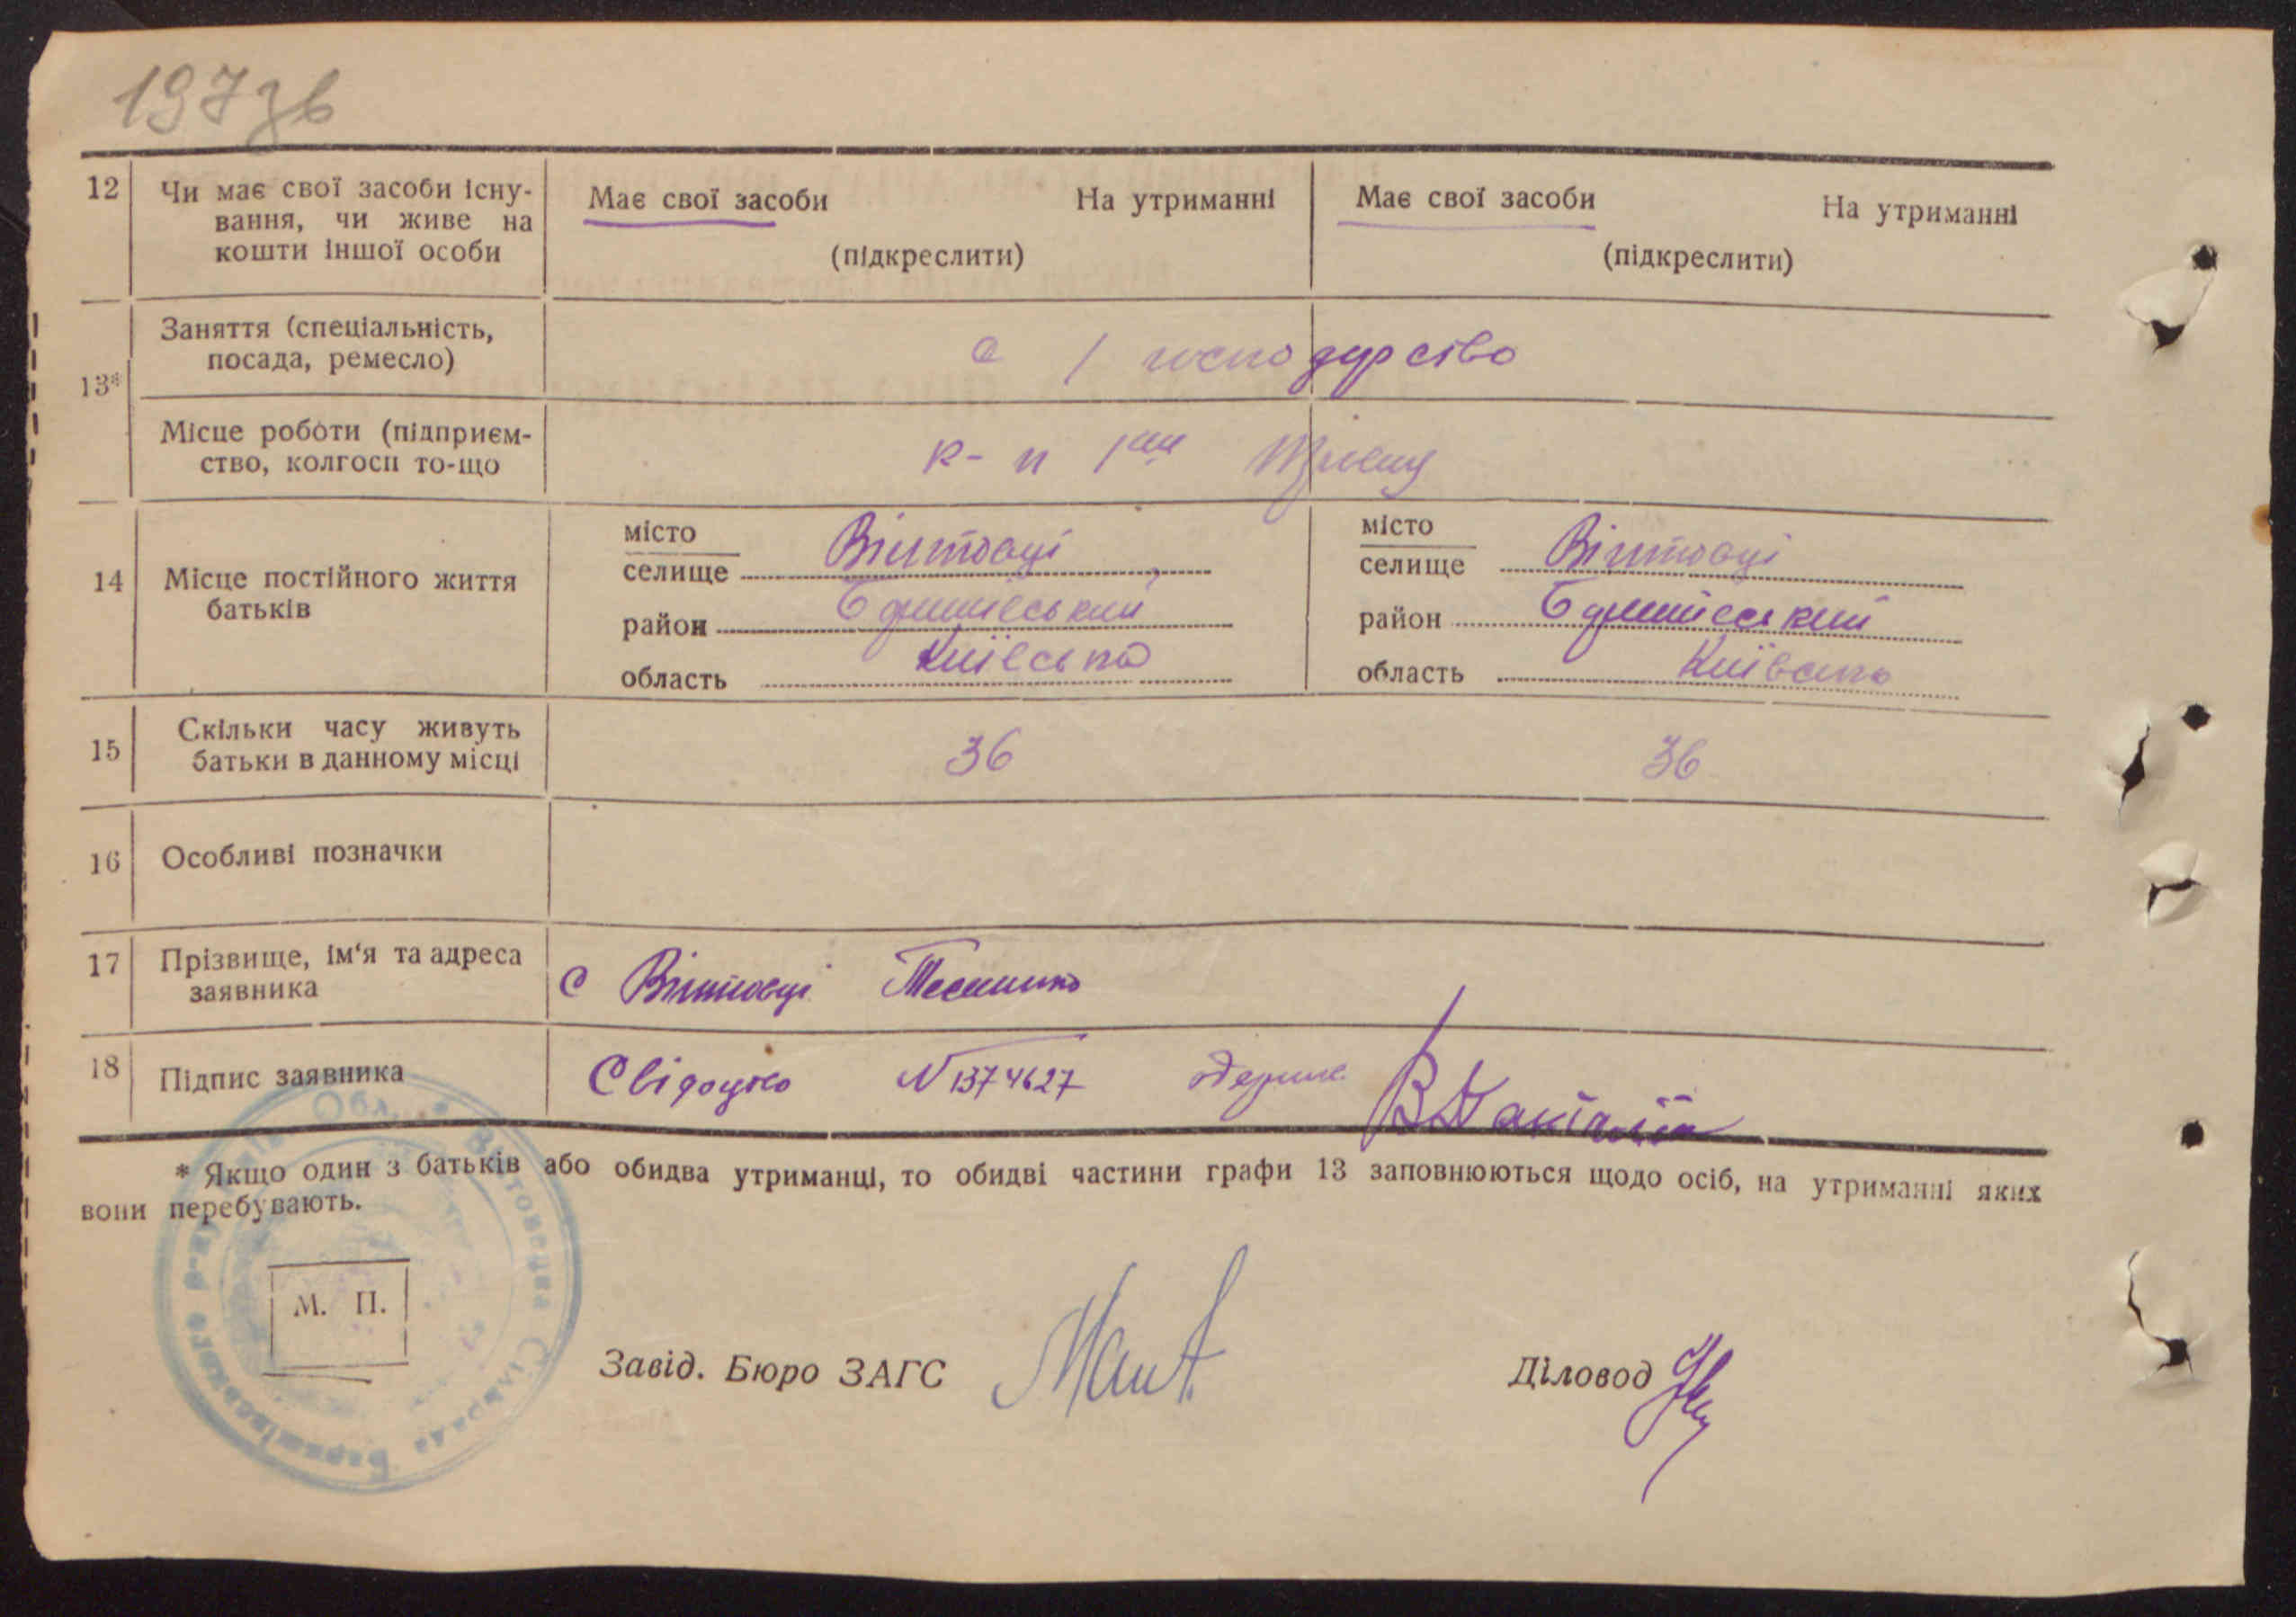 197 зв
12 Чи має свої засоби існу-
вання, чи живе на
кошти іншої особи
Має свої засоби На утриманні
(підкреслити)
Має свої засоби На утриманні
(підкреслити)
13*
Заняття (спеціальність,
посада, ремесло)
с / господарство
Місце роботи (підприєм-
ство, колгосп то-що
к-п 1ше Травня
14 Місце постійного життя
батьків
місто
селище Вітовці
район Баришівський
область Київська
місто
селище Вітовці
район Баришівський
область Київська
15 Скільки часу живуть
батьки в данному місці
36 36
16 Особливі позначки
17 Прізвище, ім'я та адреса
заявника
с Вітовці
18 Підпис заявника
Свідоцтво N 1374627 одержав
* Якщо один з батьків або обидва утриманці, то обидві частини графи 13 заповнюються щодо осіб, на утриманні яких
вони перебувають.
М. П.
Вітовецка Сільрада Баришівського р-ну Обл.
Завід. Бюро ЗАГС
Діловод